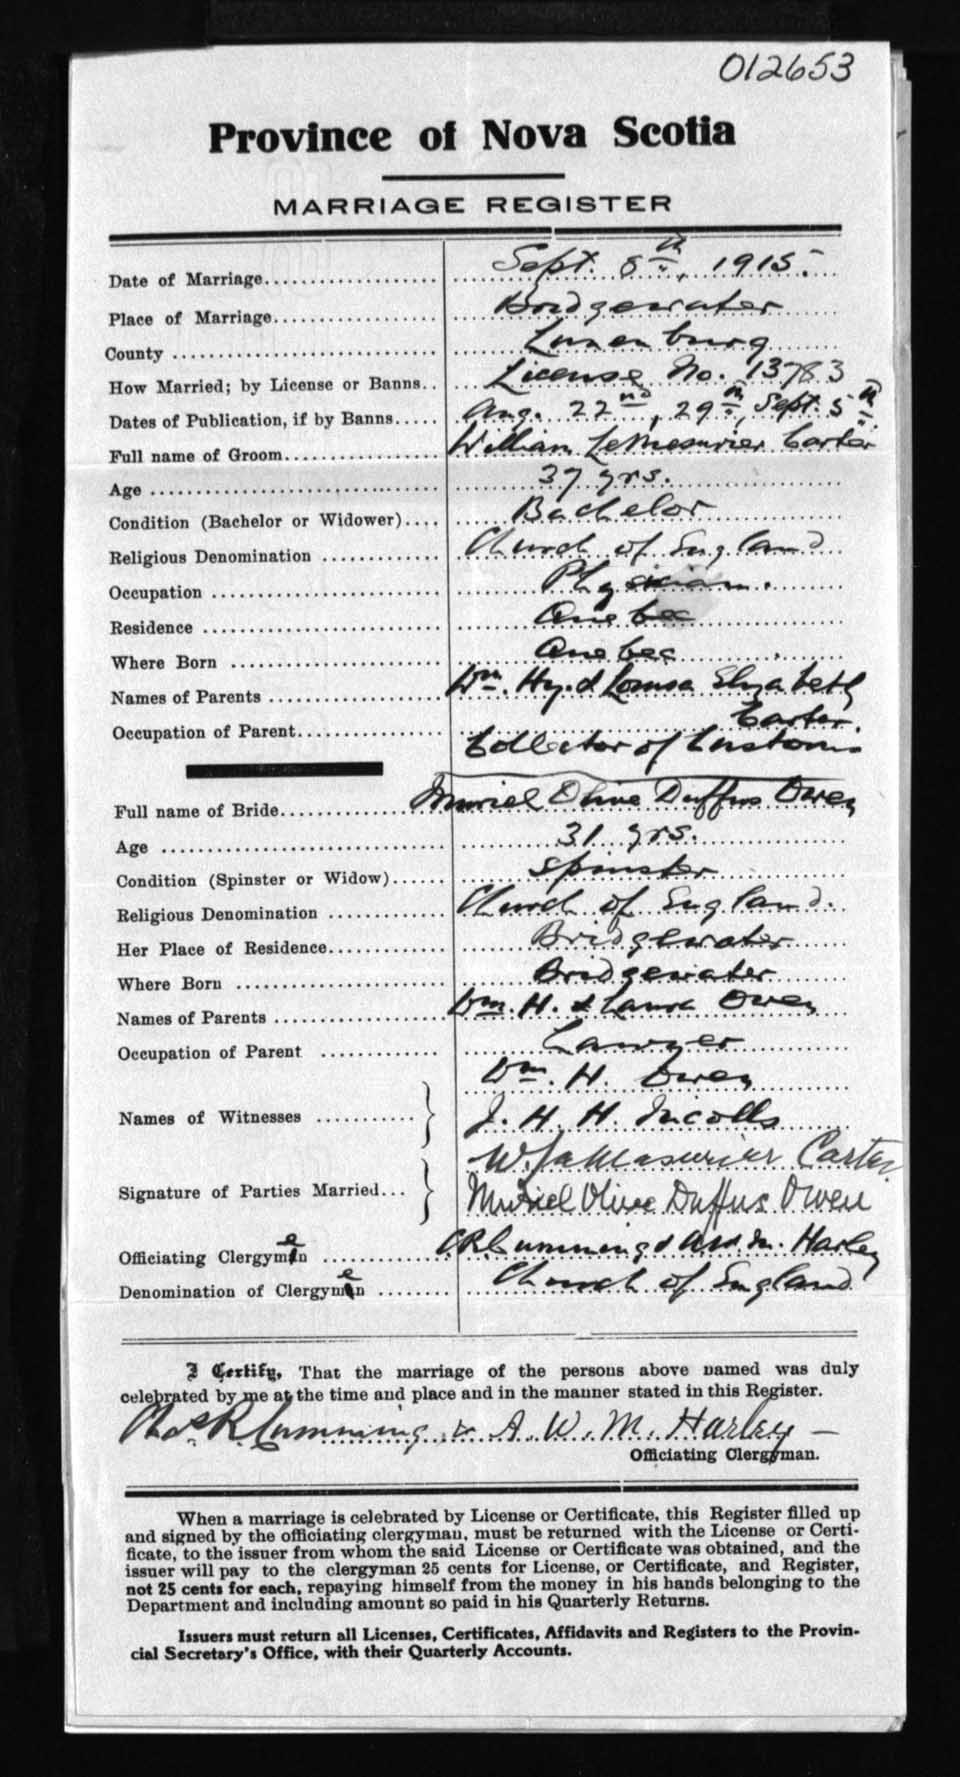 012653
Province of Nova Scotia
MARRIAGE REGISTER
Date of Marriage Sept. 8th, 1915.
Place of Marriage Bridgewater
County Lunenburg
How Married; by License or Banns License No. 13783
Dates of Publication, if by Banns Aug. 22nd, 29th, Sept. 5th
Full name of Groom William LeMesurier Carter
Age 37 yrs.
Condition (Bachelor or Widower) Bachelor
Religious Denomination Church of England
Occupation Physician.
Residence Quebec
Where Born Quebec
Names of Parents Wm. Hy. & Louisa Elizabeth
Carter.
Occupation of Parent Collector of Customs
Full name of Bride Muriel Olive Duffus Owen
Age 31 yrs.
Condition (Spinster or Widow) Spinster
Religious Denomination Church of England.
Her Place of Residence Bridgewater
Where Born Bridgewater
Names of Parents Wm. H. & Laura Owen
Occupation of Parent Lawyer
Wm. H. Owen
Names of Witnesses J. H. H. Nicolls
W. LeMesurier Carter
Signature of Parties Married Muriel Olive Duffus Owen
Officiating Clergymen C.R. Cumming & A.W.M. Harley
Denomination of Clergymen Church of England
I Certify, That the marriage of the persons above named was duly
celebrated by me at the time and place and in the manner stated in this Register.
Chas. R. Cumming & A. W. M. Harley –
Officiating Clergyman.
When a marriage is celebrated by License or Certificate, this Register filled up
and signed by the officiating clergyman, must be returned with the License or Certi-
ficate, to the issuer from whom the said License or Certificate was obtained, and the
issuer will pay to the clergyman 25 cents for License, or Certificate, and Register,
not 25 cents for each, repaying himself from the money in his hands belonging to the
Department and including amount so paid in his Quarterly Returns.
Issuers must return all Licenses, Certificates, Affidavits and Registers to the Provin-
cial Secretary's Office, with their Quarterly Accounts.